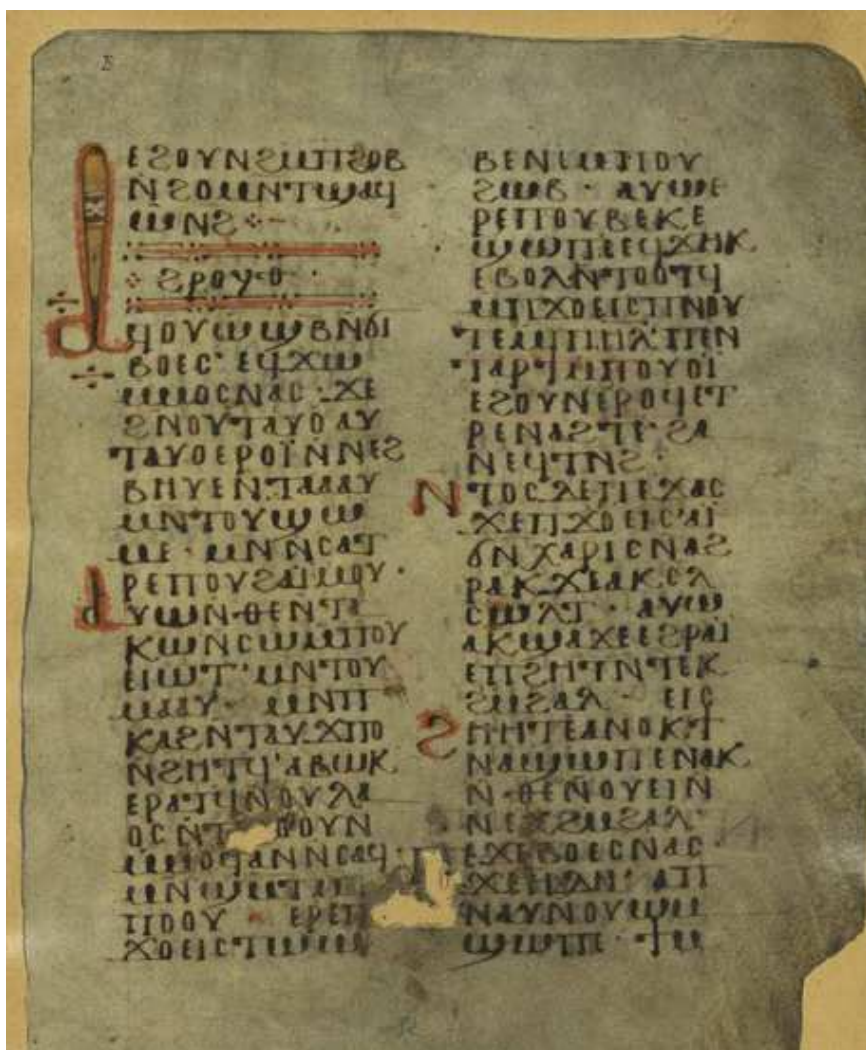 ⲉϩⲟⲩⲛϩⲙⲡϩⲟⲃ
ⲛ̄ϩⲟⲙⲛⲧϣⲁϥ
ⲱⲛϩ
ϩⲣⲟⲩⲑ
ⲁϥⲟⲩⲱϣⲃⲛϭⲓ
ⲃⲟⲉⲥ·ⲉϥϫⲱ
ⲙⲙⲟⲥⲛⲁⲥ·ϫⲉ
ϩⲛⲟⲩⲧⲁⲩⲟⲁⲩ
ⲧⲁⲩⲟⲉⲣⲟⲓ̈ⲛⲛⲉϩ
ⲃⲏⲩⲉⲛⲧⲁⲁⲁⲩ
ⲙⲛⲧⲟⲩϣⲱ
ⲙⲉ·ⲙⲛⲛⲥⲁⲧ
ⲣⲉⲡⲟⲩϩⲁⲓ̈ⲙⲟⲩ·
ⲁⲩⲱⲛⲑⲉⲛⲧⲁ
ⲕⲱⲛⲥⲱⲙⲡⲟⲩ
ⲉⲓⲱⲧ·ⲙⲛⲧⲟⲩ
ⲙⲁⲁⲩ·ⲙⲛⲡ
ⲕⲁϩⲛⲧⲁⲩϫⲡⲟ
ⲛϩⲏⲧϥ·ⲁⲃⲱⲕ
ⲉⲣⲁⲧϥⲛⲟⲩⲗⲁ
ⲟⲥⲛⲧ ⲟⲟⲩⲛ
ⲙⲙⲟϥⲁⲛⲛⲥⲁϥ·
ⲡⲟⲟⲩ· ⲉⲣⲉⲡ
ϫⲟⲉⲓⲥⲧⲱⲱ
ⲃⲉⲛⲙⲡⲟⲩ
ϩⲱⲃ· ⲁⲩⲱⲉ
ⲣⲉⲡⲟⲩⲃⲉⲕⲉ
ϣⲱⲡⲉⲉϥϫⲏⲕ
ⲉⲃⲟⲗⲛⲧⲟⲟⲧϥ
ⲙⲡϫⲟⲉⲓⲥⲡⲛⲟⲩ
ⲧⲉⲙⲡⲓⲏⲗ·ⲡⲉⲛ
ⲧⲁⲣϯⲙⲡⲟⲩⲟⲓ̈
ⲉϩⲟⲩⲛⲉⲣⲟϥⲉⲧ
ⲣⲉⲛⲁϩⲧⲉϩⲁ
ⲛⲉϥⲧⲛϩ·
ⲛⲧⲟⲥⲇⲉⲡⲉϫⲁⲥ
ϫⲉⲡϫⲟⲉⲓⲥ·ⲁⲓ̈
ϭⲛⲭⲁⲣⲓⲥⲛⲁϩ
ⲣⲁⲕ·ϫⲉⲁⲕⲥⲗ
ⲥⲱⲗⲧ· ⲁⲩⲱ
ⲁⲕϣⲁϫⲉⲉϩⲣⲁⲓ̈
ⲉⲡϩⲏⲧⲛⲧⲉⲕ
ϩⲙϩⲁⲗ· ⲉⲓⲥ
ϩⲏⲏⲧⲉⲁⲛⲟⲕϯ
ⲛⲁϣⲱⲡⲉⲛⲁⲕ
ⲛⲑⲉⲛⲟⲩⲉⲓⲛ
ⲛⲉⲕϩⲙϩⲁⲗ·
ⲡⲉϫⲉⲃⲟⲉⲥⲛⲁⲥ·
ϫⲉⲏⲇⲏ·ⲁⲡ
ⲛⲁⲩⲛⲟⲩⲱⲙ
ϣⲱⲡⲉ·ϯⲡ